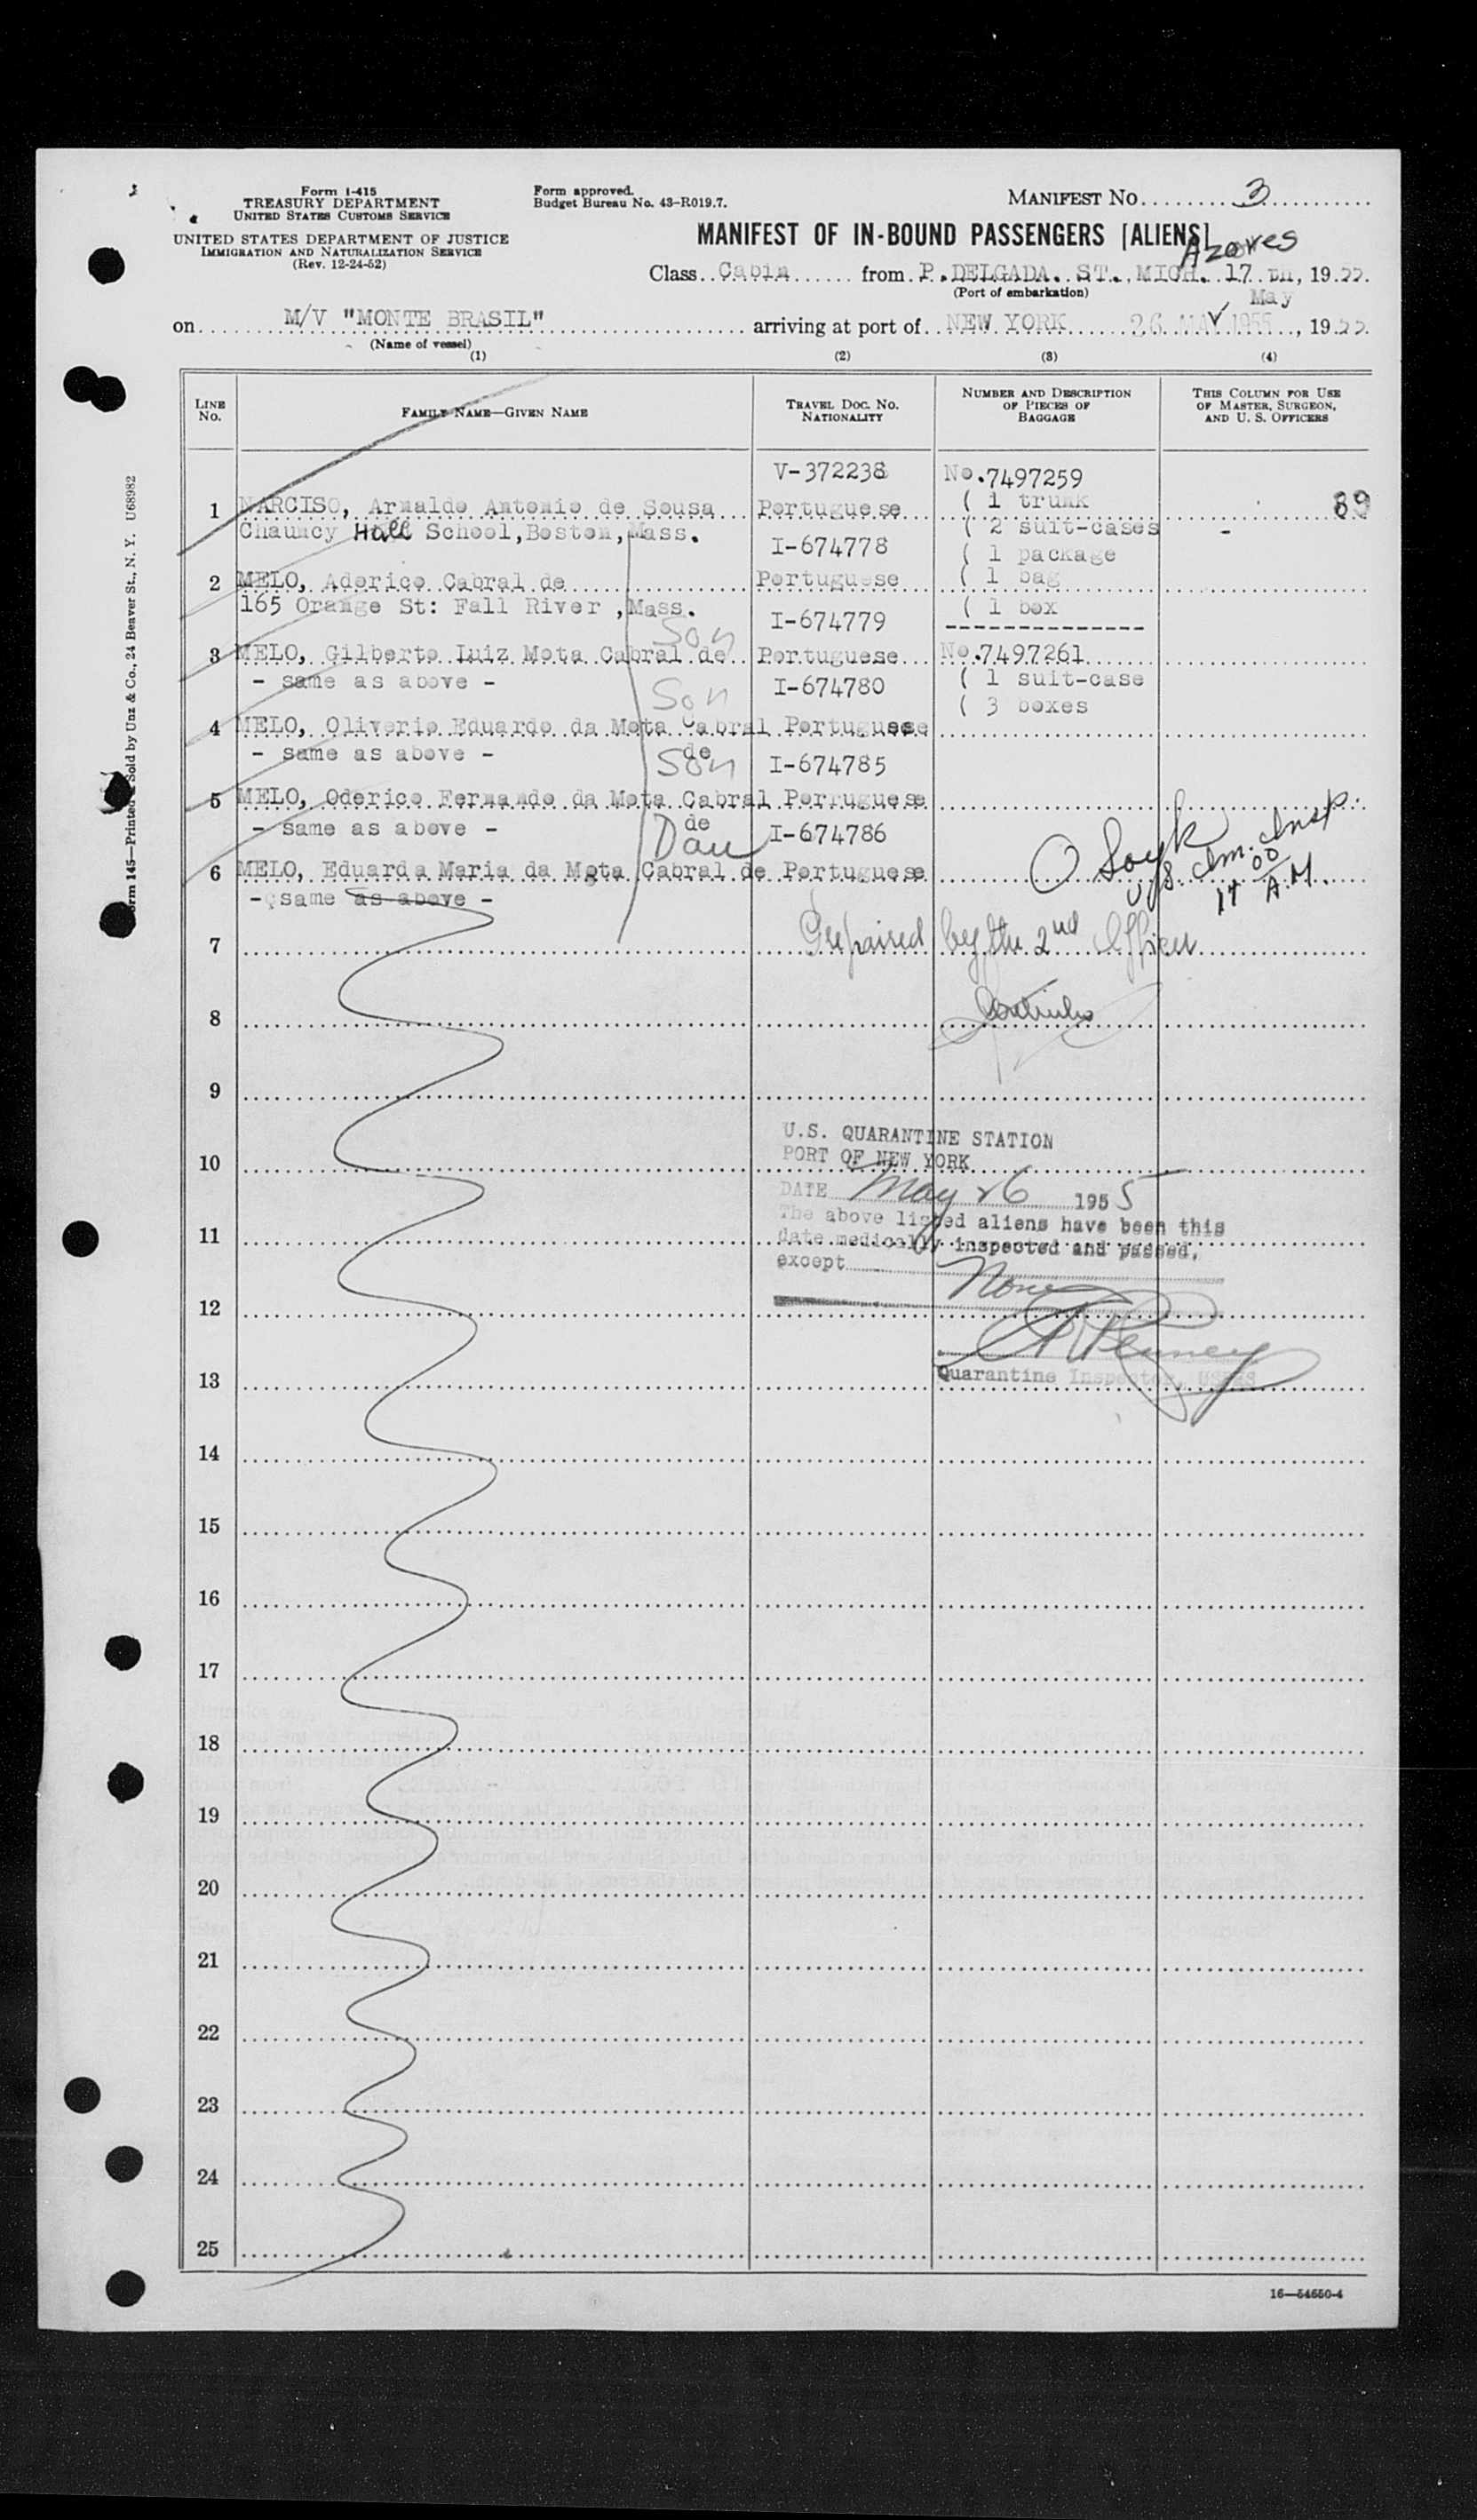 Form I-415
TREASURY DEPARTMENT
UNITED STATES CUSTOMS SERVICE
UNITED STATES DEPARTMENT OF JUSTICE
IMMIGRATION AND NATURALIZATION SERVICE
(Rev. 12-24-52)
Form approved.
Budget Bureau No. 43-R019.7.
MANIFEST NO. 3
MANIFEST OF IN-BOUND PASSENGERS [ALIENS]
Azores
Class Cabin from P. DELGADA. ST., MICH. 17 th, 1955.
(Port of embarkation)
May
on M/V "MONTE BRASIL" arriving at port of NEW YORK 26 MAY 1955, 1955.
(Name of vessel)
(1) (2) (3) (4)
LINE NO.
FAMILY NAME—GIVEN NAME
TRAVEL DOC. NO. NATIONALITY
NUMBER AND DESCRIPTION OF PIECES OF BAGGAGE
THIS COLUMN FOR USE OF MASTER, SURGEON, AND U. S. OFFICERS
V-372238 No.7497259
1 NARCISO, Arnaldo Antonio de Sousa Portuguese ( 1 trunk 89
Chauncy Hall School, Boston, Mass. ( 2 suit-cases -
I-674778 ( 1 package
2 MELO, Aderico Cabral de Portuguese ( 1 bag
165 Orange St: Fall River, Mass. ( 1 box
I-674779 ---------------
Son
3 MELO, Gilberto Luiz Mota Cabral de Portuguese No.7497261
- same as above - ( 1 suit-case
Son I-674780 ( 3 boxes
4 MELO, Oliverio Eduardo da Mota Cabral Portuguese
- same as above - de
Son I-674785
5 MELO, Oderico Fernando da Mota Cabral Porruguese
- same as above - de
Dau I-674786
O Soyk
US Imm. Insp.
11 00 A.M.
6 MELO, Eduarda Maria da Mota Cabral de Portuguese
- same as above -
7 Prepaired by the 2nd Officer
8
9
U.S. QUARANTINE STATION
10 PORT OF NEW YORK
DATE May 26 1955
The above listed aliens have been this
11 date medically inspected and passed,
except None
12
13 Quarantine Inspector, USPHS
14
15
16
17
18
19
20
21
22
23
24
25
16—54650-4
Form 145—Printed & Sold by Unz & Co., 24 Beaver St., N. Y. U68982